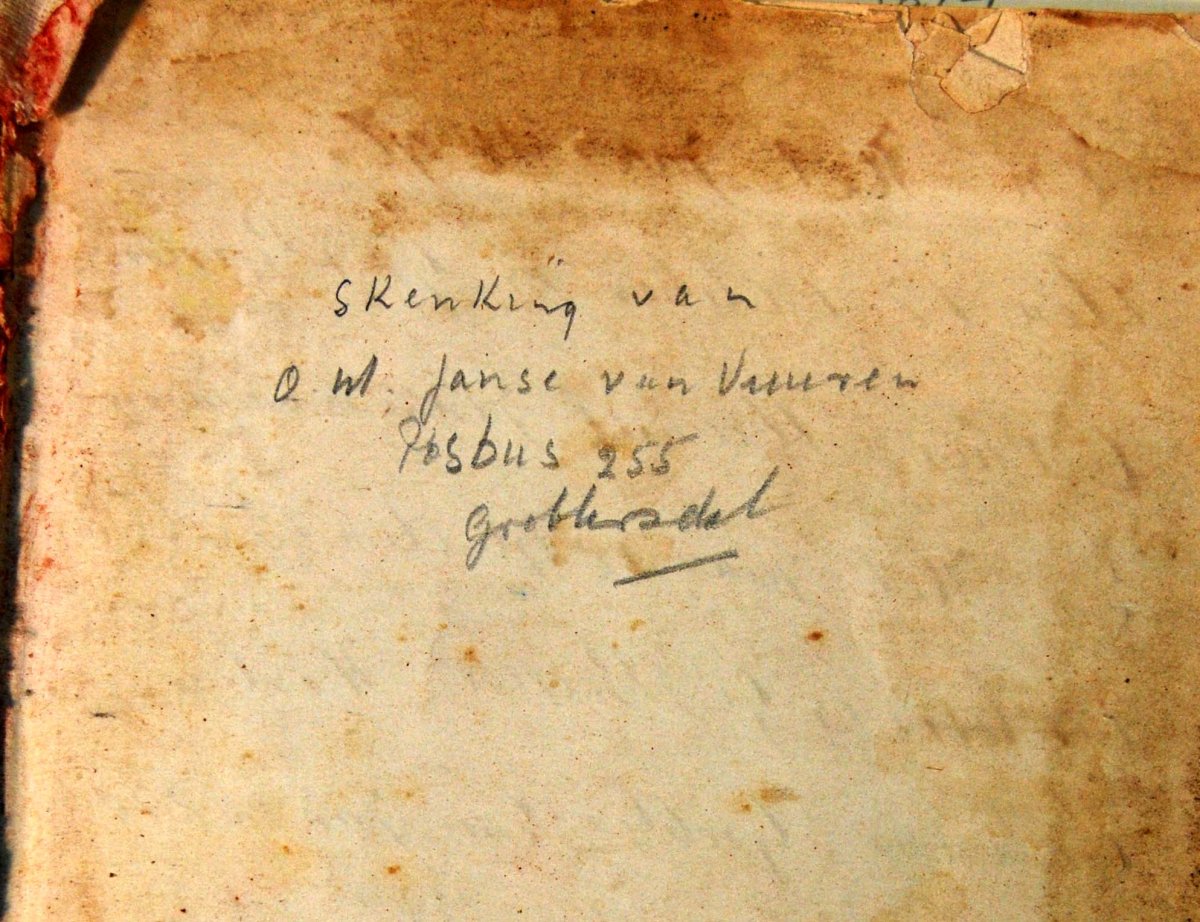 Skenking van
O. M. Janse van Vuuren
Posbus 255
Groblersdal